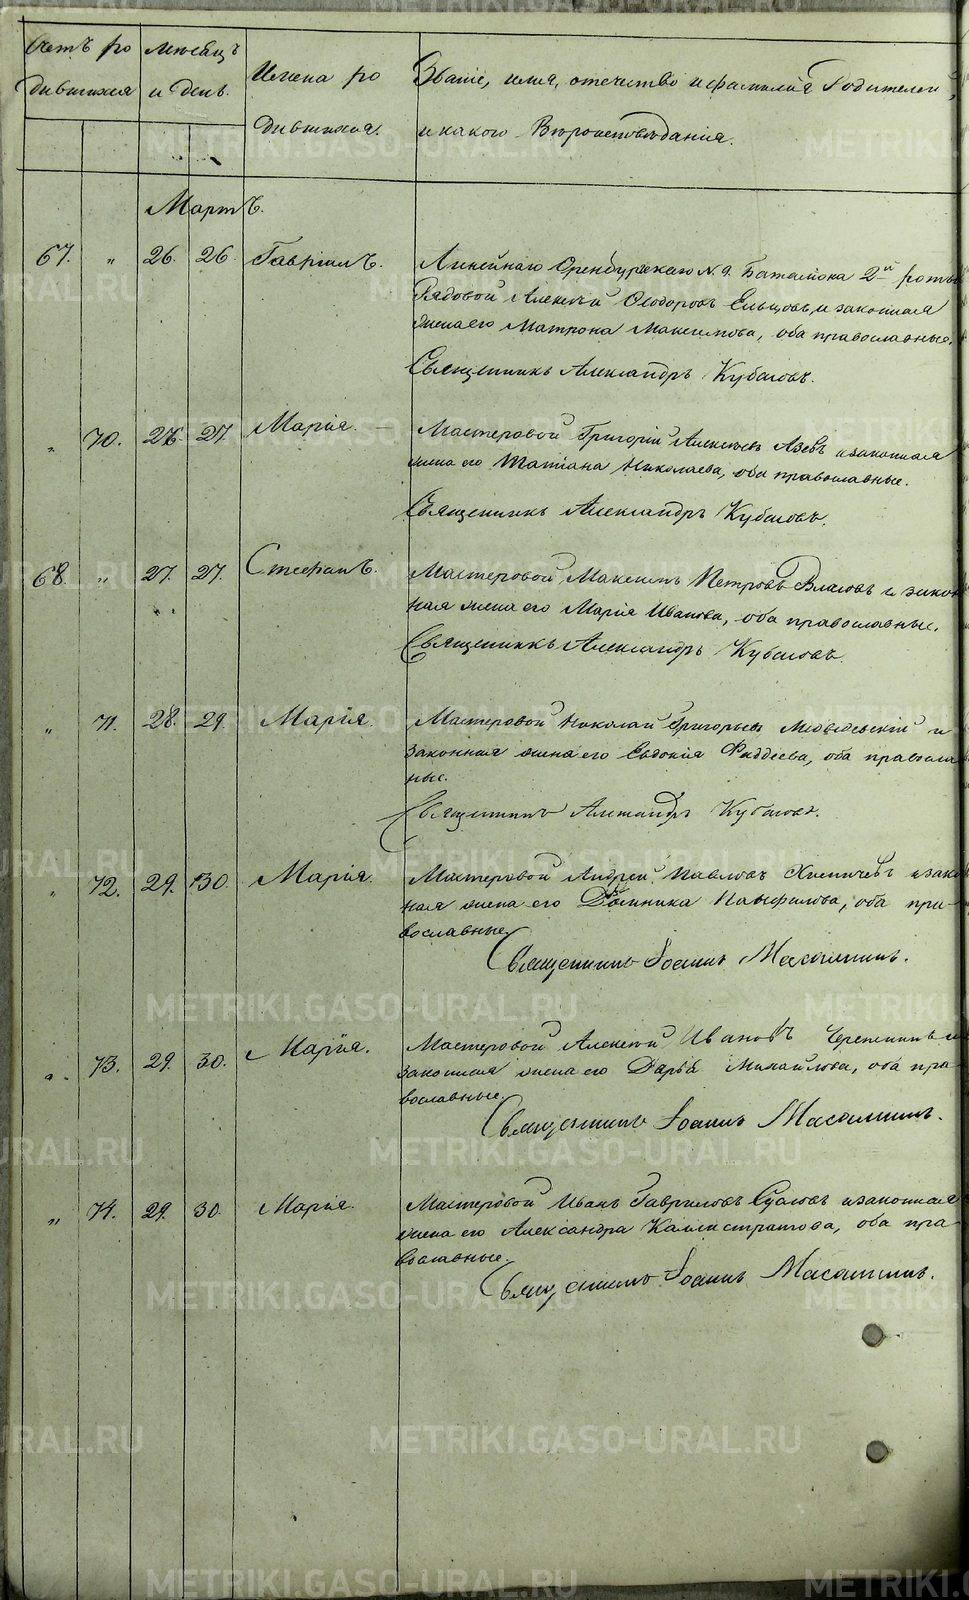 Счетъ ро мѣсяцъ Имена ро Званіе, имя, отечество и фамилія Родителей,
дившихся и день. дившихся. и какого Вѣроисповѣданія.
Мартъ.
67. " 26. 26. Гавріилъ. Линейнаго Оренбургскаго N. 9. Баталіона 2й роты
Рядовой Алексѣй Ѳеодоровъ Ельцовъ, и законная
жена его Матрона Максимова, оба православные.
Священникъ Александръ Кубасовъ.
" 70. 26. 27. Марія. Мастеровой Григорій Алексѣевъ Азевъ и законная
жена его Татіана Николаева, оба православные.
Священникъ Александръ Кубасовъ.
68. " 27. 27. Стефанъ. Мастеровой Максимъ Петровъ Власовъ и закон
ная жена его Марія Иванова, оба православные.
Священникъ Александръ Кубасовъ.
" 71. 28. 29. Марія. Мастеровой Николай Григорьевъ и
законная жена его Евдокія Фаддеева, оба православ
ные.
Священникъ Александръ Кубасовъ.
" 72. 29. 30. Марія. Мастеровой Андрей Павловъ и закон
ная жена его Домника Панфилова, оба пра-
вославные.
Священникъ Іоаннъ
" 73. 29. 30. Марія. Мастеровой Алексѣй Ивановъ и
законная жена его Дарья Михайлова, оба пра-
вославные.
Священникъ Іоаннъ
" 74. 29. 30. Марія. Мастеровой Иванъ Гавриловъ и законная
жена его Александра Каллистратова, оба пра-
вославные.
Священникъ Іоаннъ
METRIKI.GASO-URAL.RU